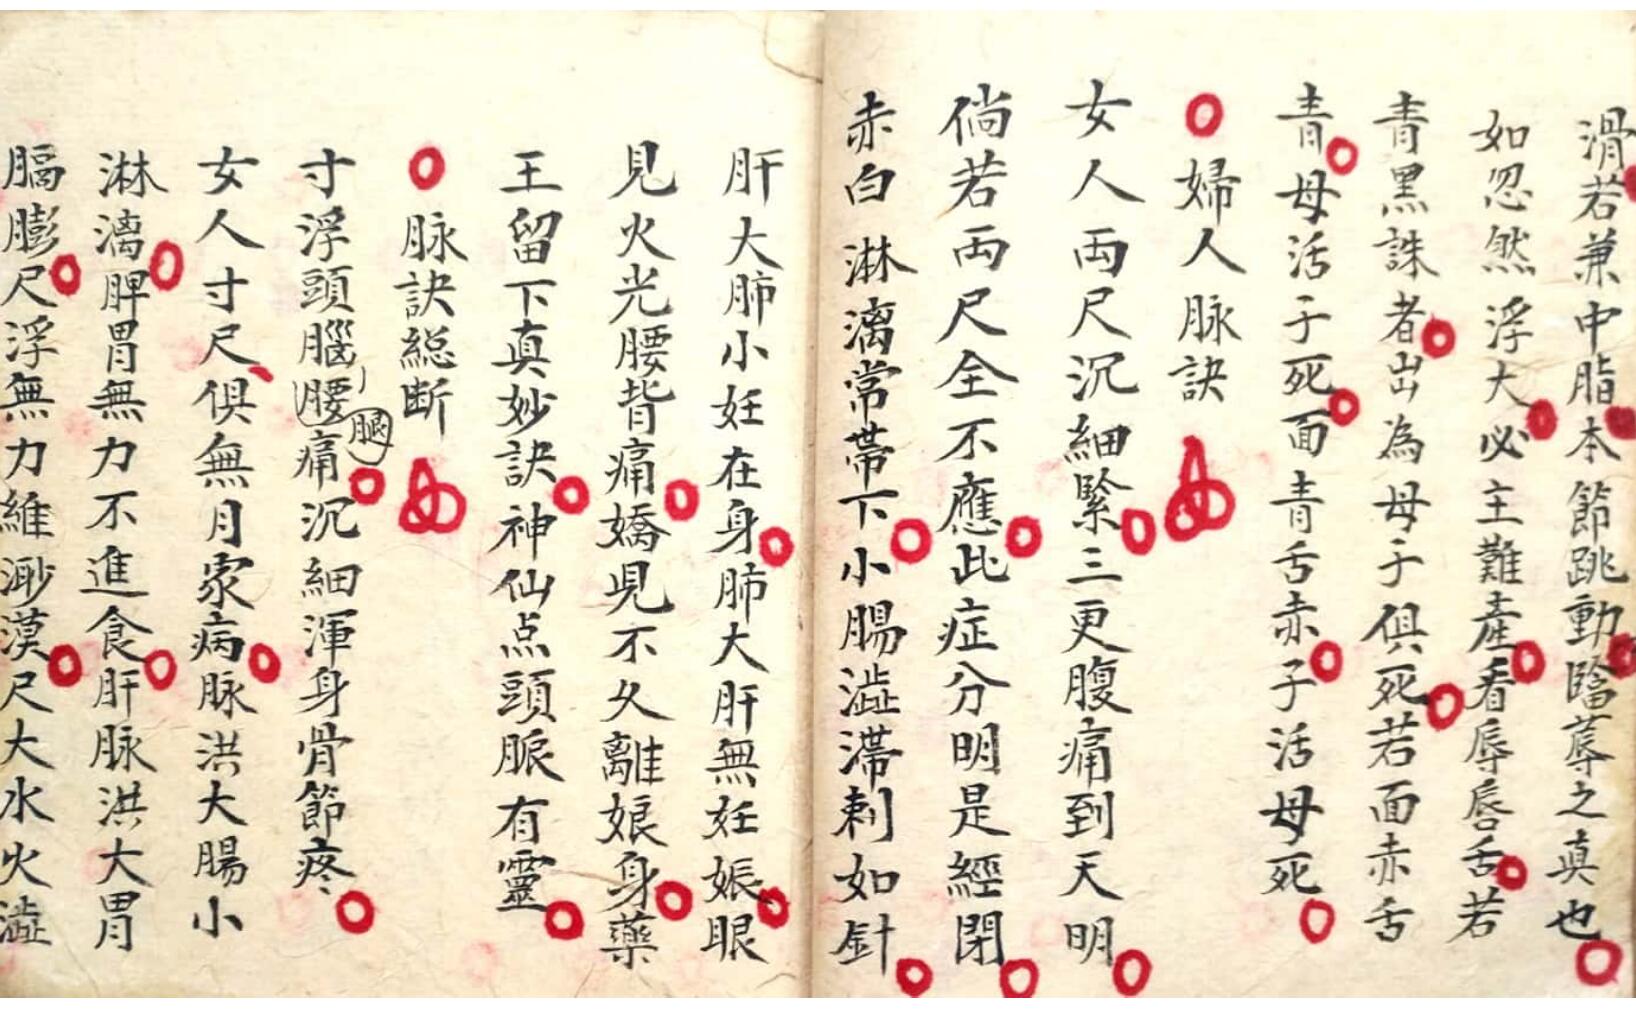 滑若兼中脂本節跳動臨蓐之真也
如忽然浮大必主難產看辱唇舌若
青黑誅者出為母子俱死若面赤舌
青母活子死面青舌赤子活母死
婦人脉訣
女人両尺沉細緊三更腹痛到天明
倘若両尺全不應此症分明是經閉
赤白淋漓常帶下小腸澁滯刺如針
肝大肺小妊在身肺大肝無妊娠眼
見火光腰背痛嬌児不久離娘身藥
王留下真妙訣神仙点頭脈有靈
脉訣総断
寸浮頭腦腰痛沉細渾身骨節疼
腿
女人寸尺俱無月家病脉洪大腸小
淋漓脾胃無力不進食肝脉洪大胃
膈膨尺浮無力維渺漠尺大水火澁